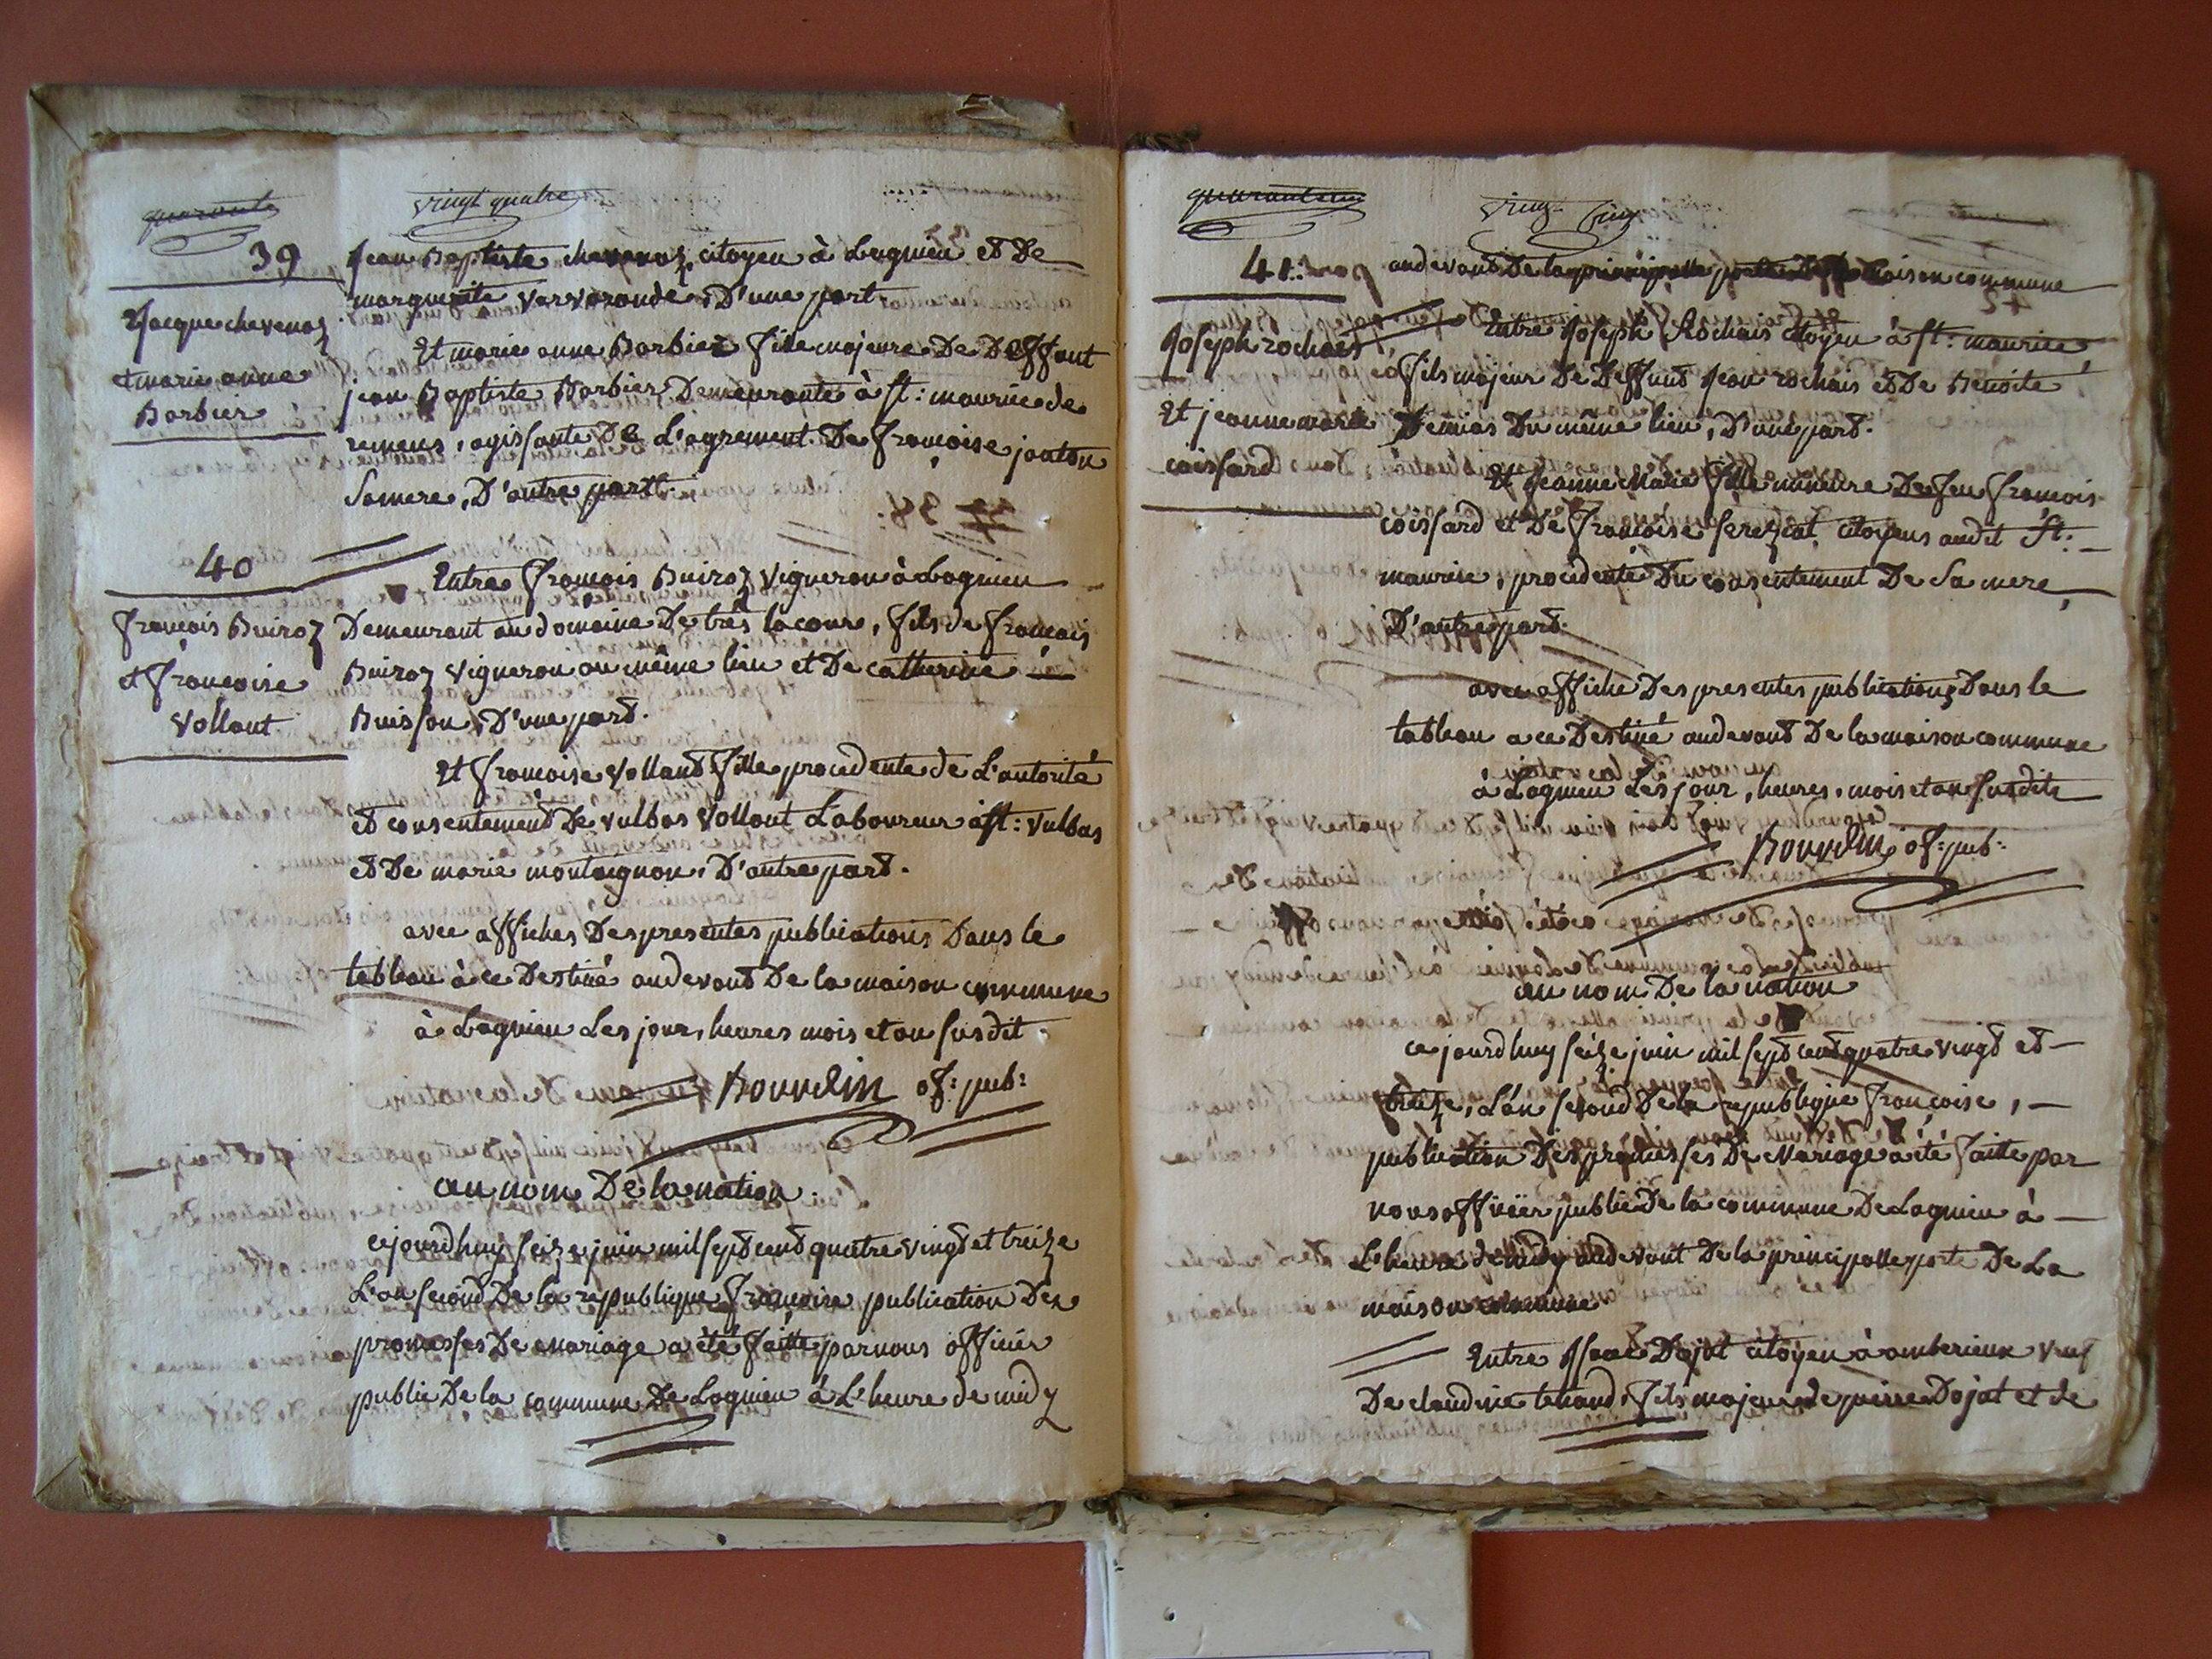 quarante
vingt quatre
39
Jean Baptiste chavanoz, citoyen à Lagnieu et De
marguerite varvarande, D'une part
Jacque chevenoz
et marie anne
Barbier
Et marie anne Barbier fille majeure De Deffunt
jean Baptiste Barbier Demeurante à st: maurice de
remens, agissante De L'agrement De francoise jonton
Sa mere, D'autre part.
40
francois Buiroz
et francoise
Vollant
Entre francois Buiroz Vigneron à Lagnieu
Demeurant au domaine De tres la cour, fils de francois
Buiroz Vigneron au même lieu et De catherine
Buisson, D'une part.
Et francoise Volland fille procedente de L'autorité
et consentement De vulbas Vollant Laboureur à st: Vulbas
et De marie montagnon, D'autre part.
avec affiches Des presentes publications Dans le
tableau à ce Destiné audevant De la maison commune
à Lagnieu Les jour, heures mois et an susdit.
Bourdin of: pub:
au nom De la nation.
cejourdhuy seize juin mil sept cent quatre vingt et treize
L'an second De la republique francoise publication Des
promesses De mariage a été faitte par nous officier
public De la commune De Lagnieu à L'heure de midy
quarante un
vingt cinq
41:
audevant De la principalle porte De la Maison commune
Joseph rochais
Et jeanne marie
coissard
Entre Joseph Rochais citoyen à st: maurice
fils majeur De Deffunt Jean rochais et De Benoite
Demias Du même lieu, D'une part.
Et Jeanne Marie fille mineure De feu francois
coissard et De francoise serezial citoyens audit st:
maurice, procedente Du consentement De Sa mere,
D'autre part.
avec affiche Des presentes publications Dans le
tableau a ce Destiné audevant De la maison commune
à Lagnieu Les jour, heures, mois et an susdits
Bourdin of: pub:
au nom De la nation
ce jourdhuy seize juin mil sept cent quatre vingt et
treize, L'an second De la republique francoise,
publication Des promesses De Mariage a été faitte par
nous officier public De la commune De Lagnieu à
L'heure de midy audevant De la principalle porte De La
maison commune
Entre Isaac Dojat citoyen à amberieux veuf
De claudine tenand, fils majeur de pierre Dojat et de